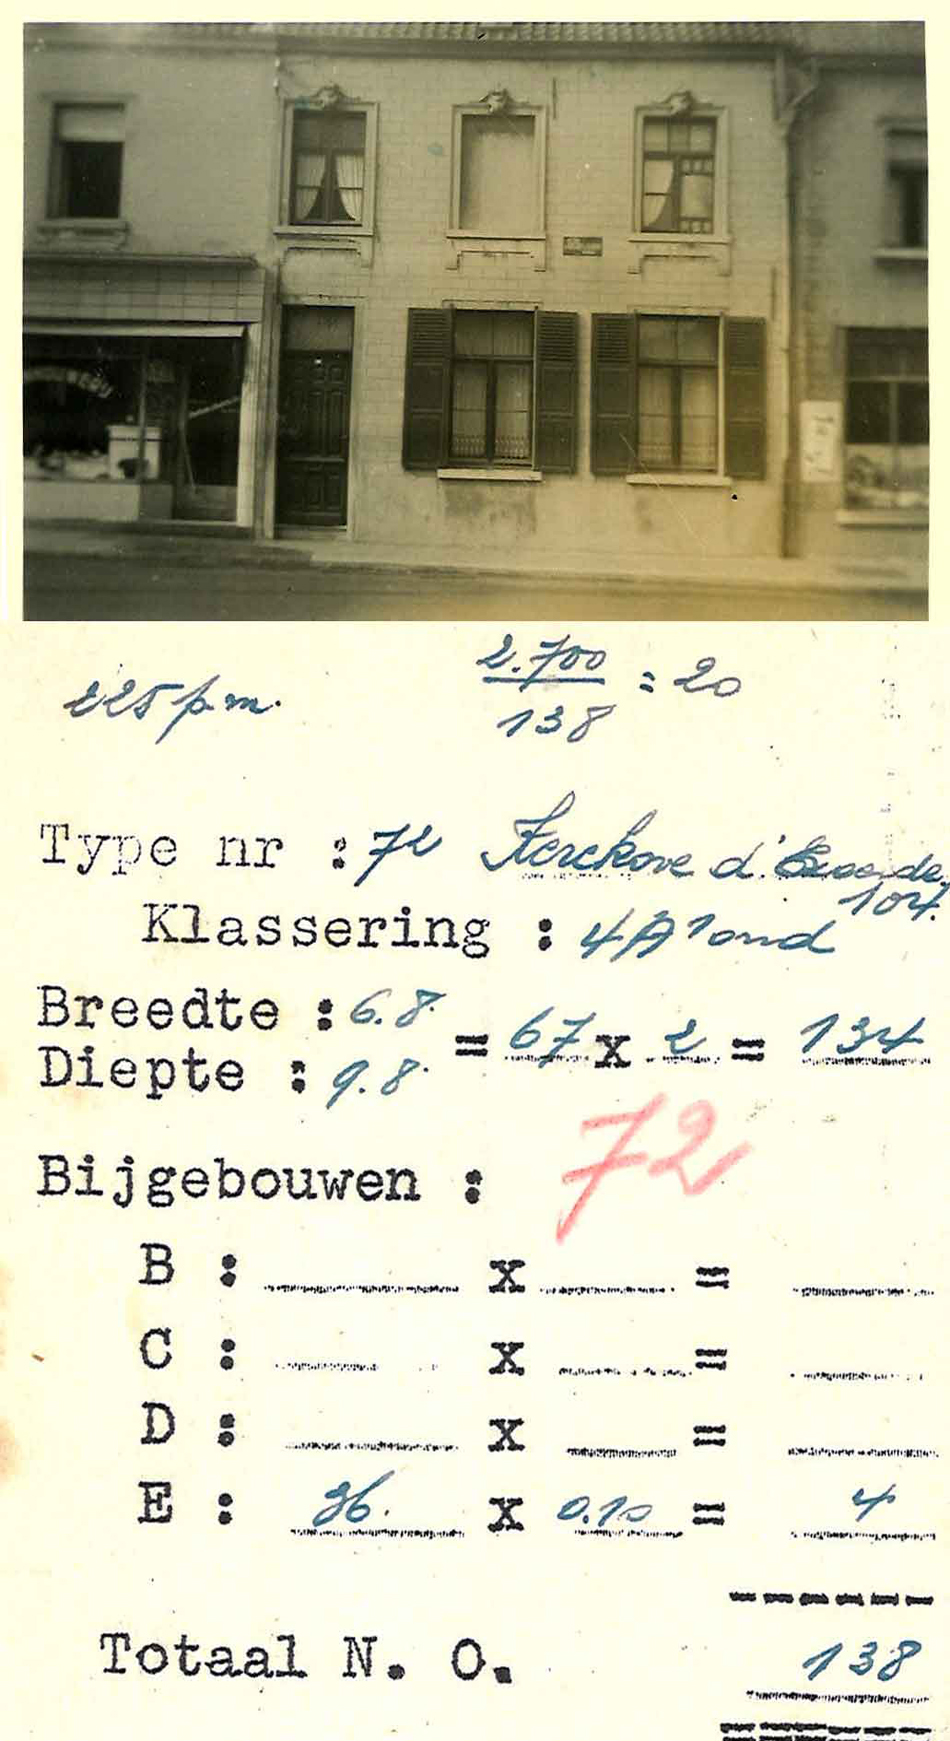 225 p.m.
2.700
138
= 20
Type nr : 72 Kerckove d'
104.
Klassering : 4A' ond
Breedte : 6.8.
Diepte : 9.8.
= 67 x 2 = 134
72
Bijgebouwen :
B : x =
C : x =
D : x =
E : 36. x 0.10 = 4
Totaal N. O. 138